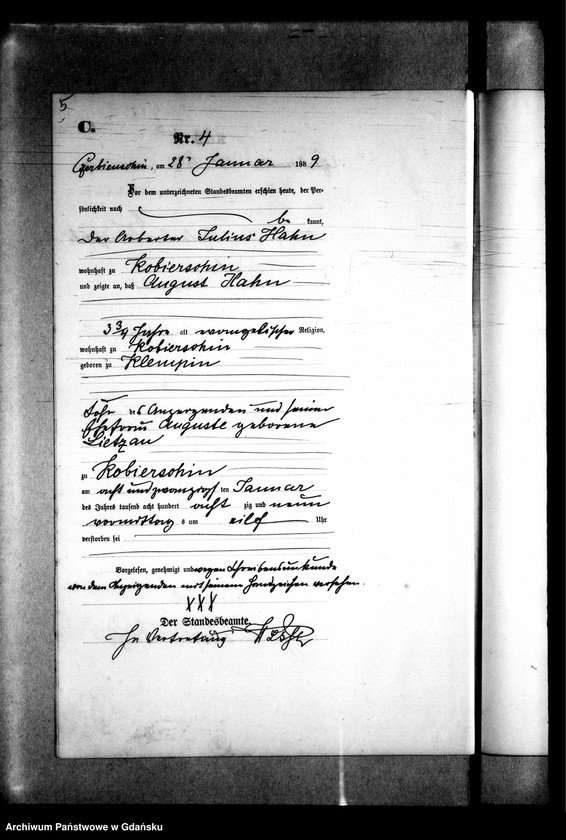 5
C.
Nr. 4
Czerbienschin, am 28. Januar 1889
Vor dem unterzeichneten Standesbeamten erschien heute, der Per-
sönlichkeit nach
be kannt,
der Arbeiter Julius Hahn
wohnhaft zu Kobierschin
und zeigte an, daß August Hahn
3 3/4 Jahre alt evangelischer Religion,
wohnhaft zu Kobierschin
geboren zu Klempin
Sohn des Anzeigenden und seiner
Ehefrau Auguste geborene
Lietzau
zu Kobierschin
am acht und zwanzigsten Januar
des Jahres tausend acht hundert acht zig und neun
vormittags um eilf Uhr
verstorben sei
Vorgelesen, genehmigt und wegen Schreibensunkunde
von dem Anzeigenden mit seinem Handzeichen versehen.
XXX
Der Standesbeamte.
In Vertretung
Archiwum Państwowe w Gdańsku